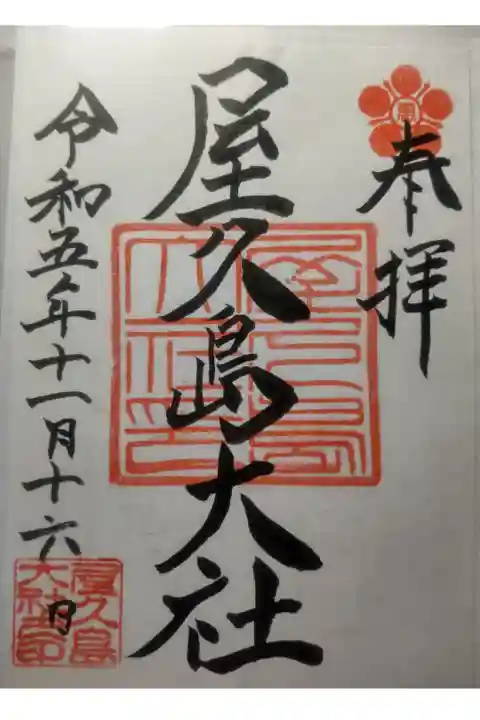 奉拝
屋久島大社
令和五年十一月十六日
屋久島
大社印